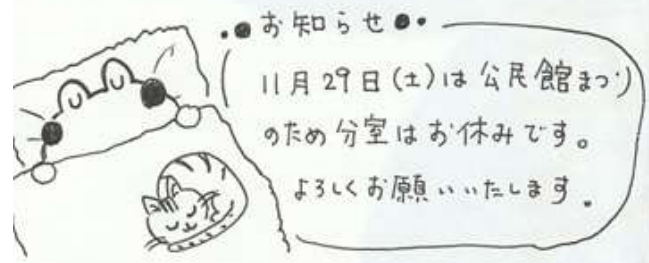 お知らせ
11月29日(土)は公民館まつり
のため分室はお休みです。
よろしくお願いいたします.